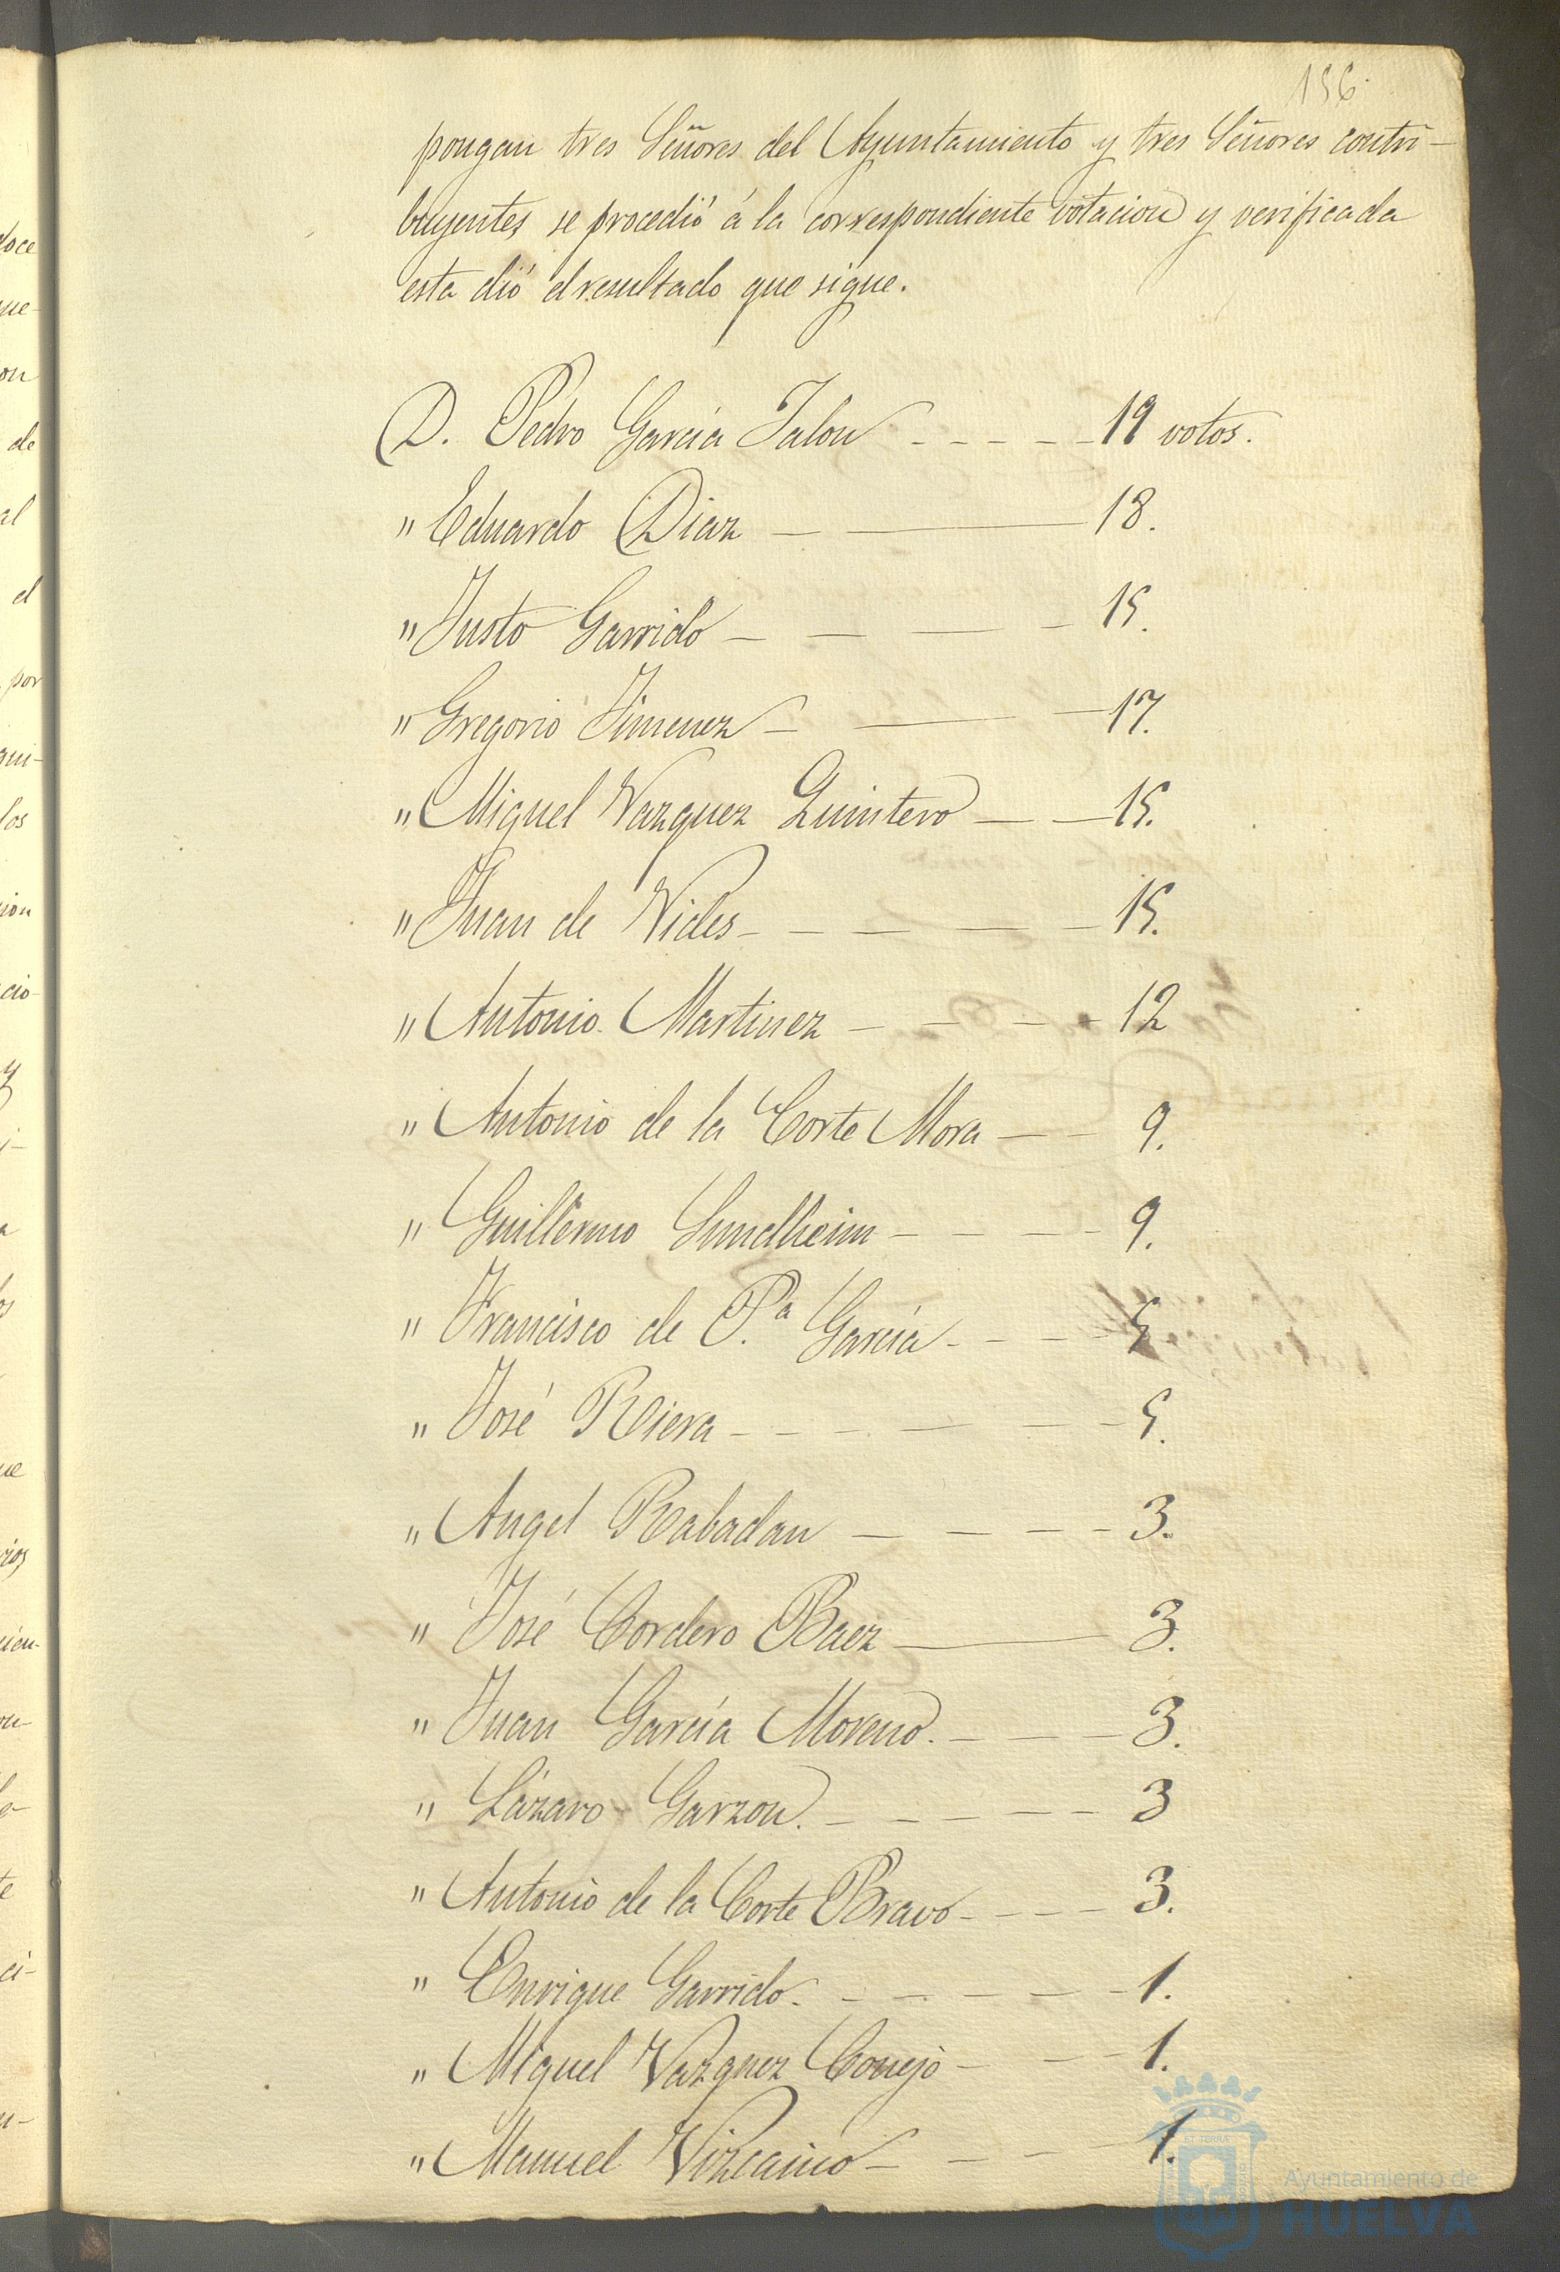 156.
pongan tres Señores del Ayuntamiento y tres Señores contri-
buyentes se procedió á la correspondiente votacion y verificada
esta dió el resultado que sigue.
D. Pedro Garcia Jalon - - - - - 19 votos.
" Eduardo Diaz - - 18.
" Justo Garrido - - - - 15.
" Gregorio Jimenez - - - 17.
" Miguel Vazquez Quintero - - 15.
" Juan de Vides - - - - - 15.
" Antonio Martinez - - - - 12
" Antonio de la Corte Mora - - 9.
" Guillermo Sundheim - - - - 9.
" Francisco de P.ª García - - - - 5
" José Riera - - - - - - - 5.
" Angel Rabadan - - - - 3.
" José Cordero Baez - 3.
" Juan García Moreno. - - - - 3.
" Lázaro Garzon. - - - - - 3
" Antonio de la Corte Bravo - - - - 3.
" Enrique Garrido. - - - - - - 1.
" Miguel Vazquez Conejo - - - 1.
" Manuel Vizcaino - - - - 1.
Ayuntamiento de
HUELVA